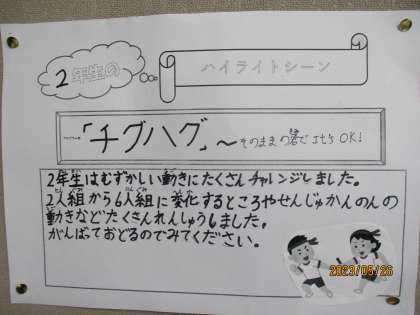 2年生の
ハイライトシーン
「チグハグ」〜そのままの君で JもOK!
2年生はむずかしい動きにたくさんチャレンジしました。
2人組から6人組に変化するところやせんじゅかんのんの
動きなどたくさんれんしゅうしました。
がんばっておどるのでみてください。
2023/05/26